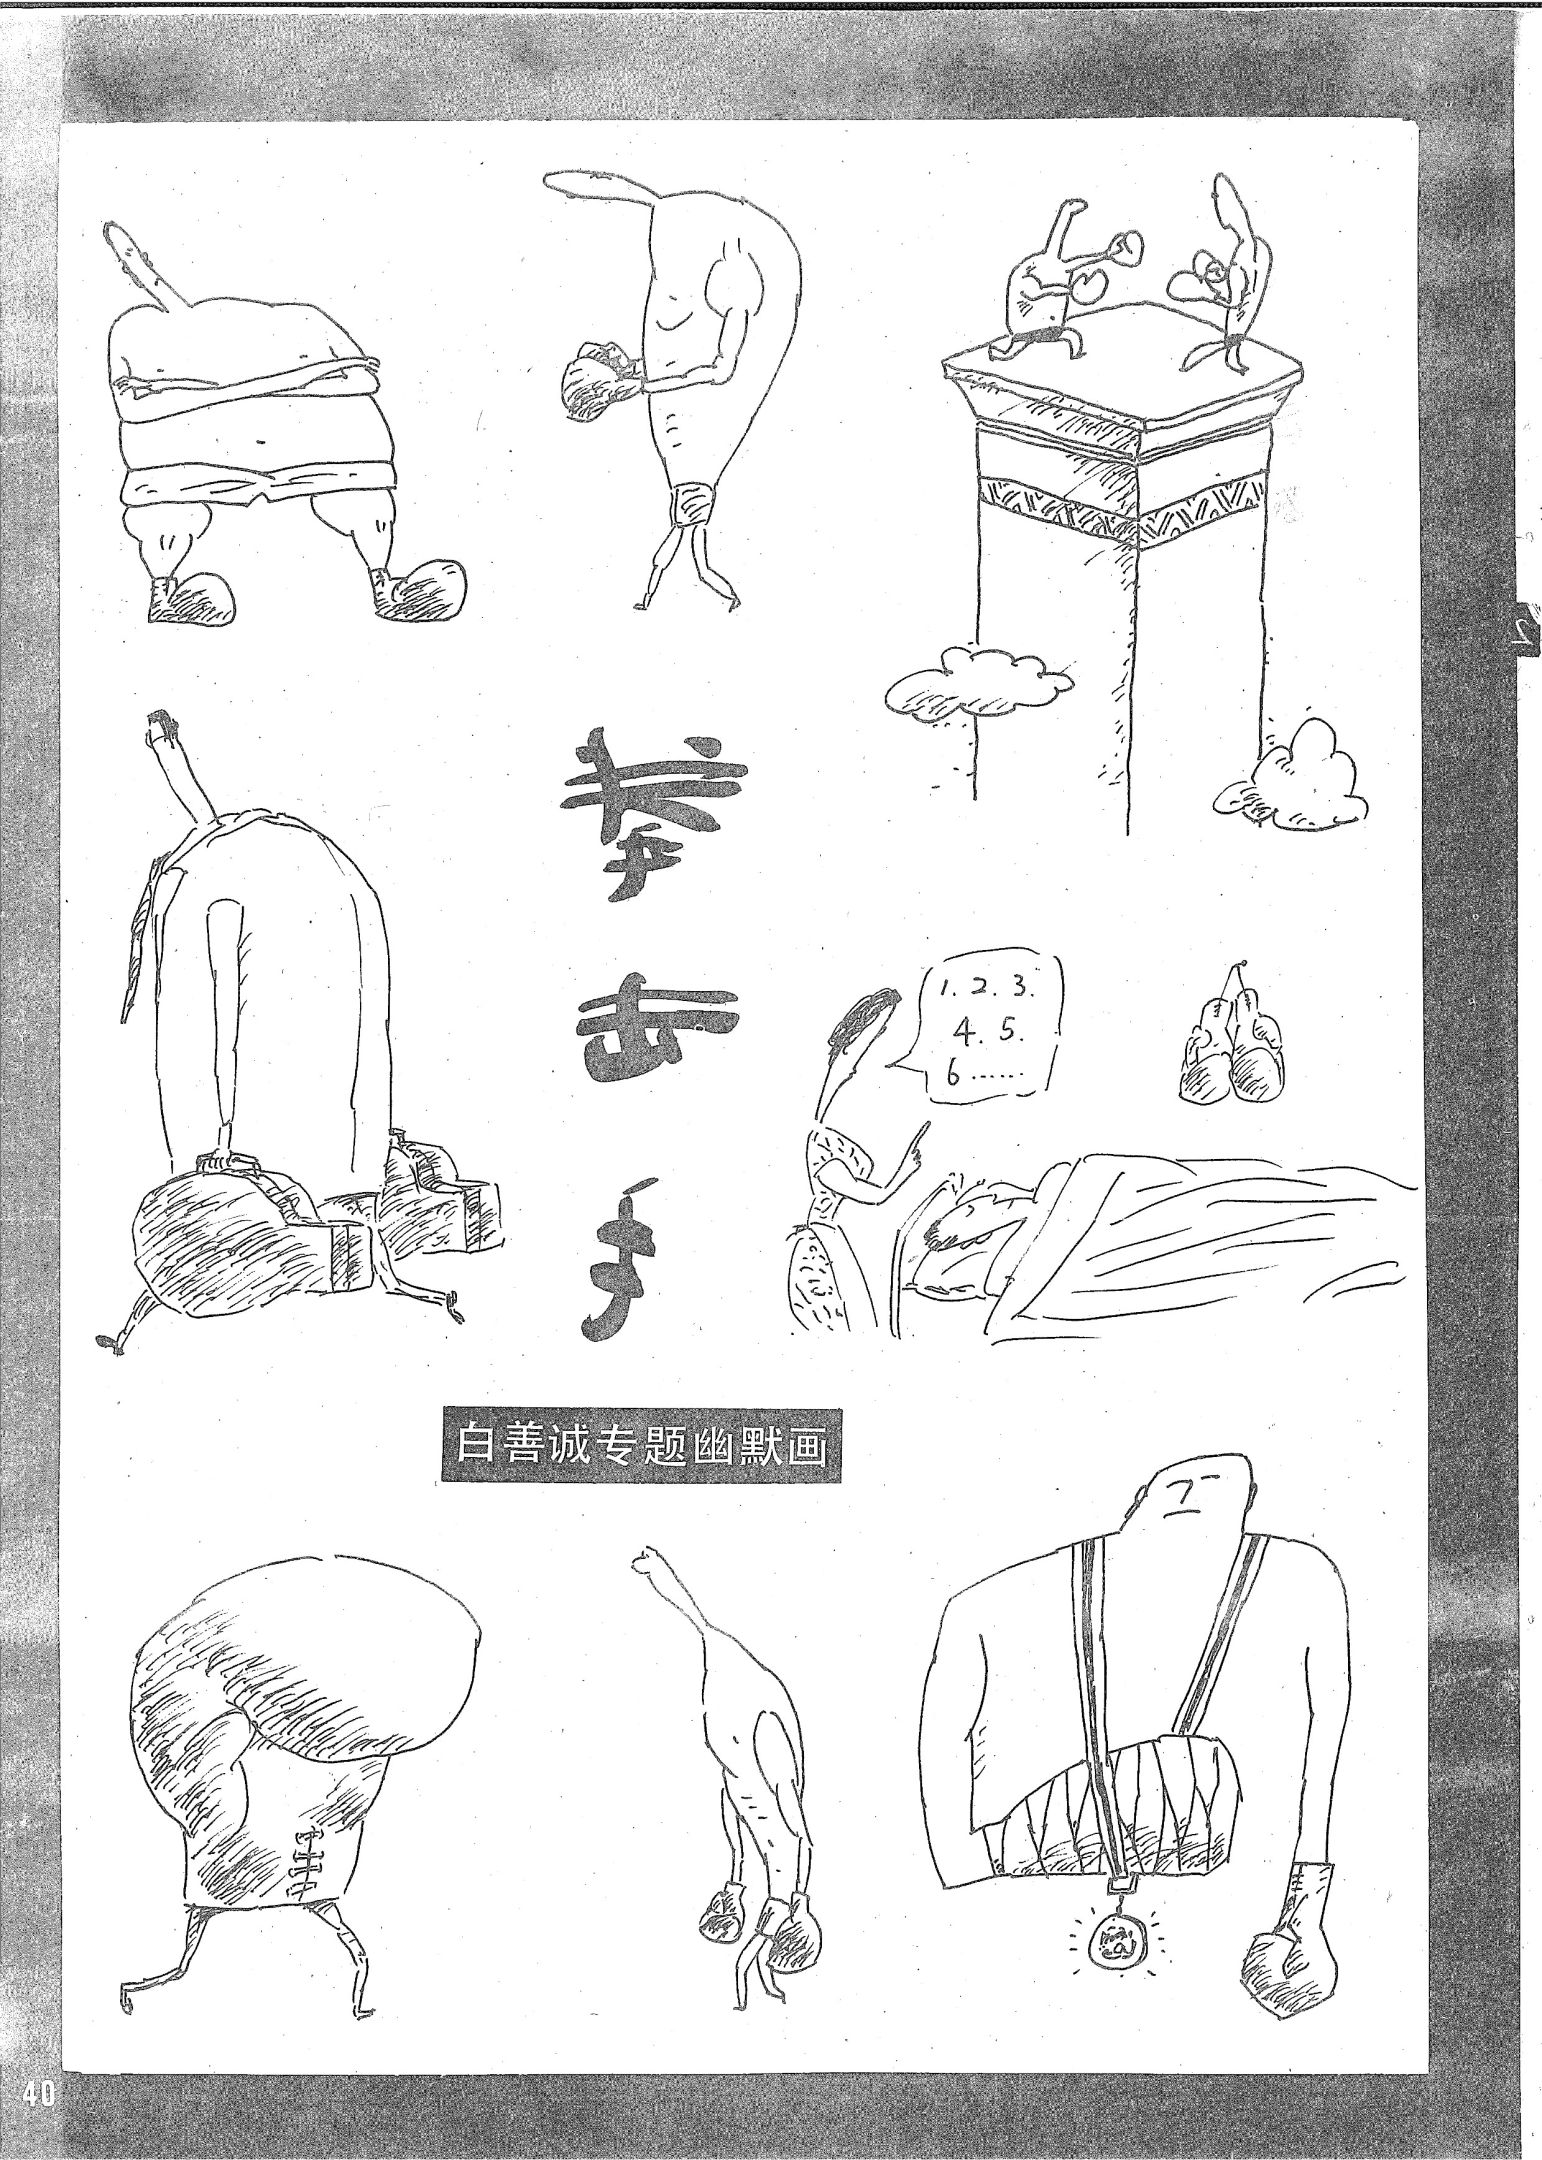 拳击手
1. 2. 3.
4. 5.
6 ……
白善诚专题幽默画
40